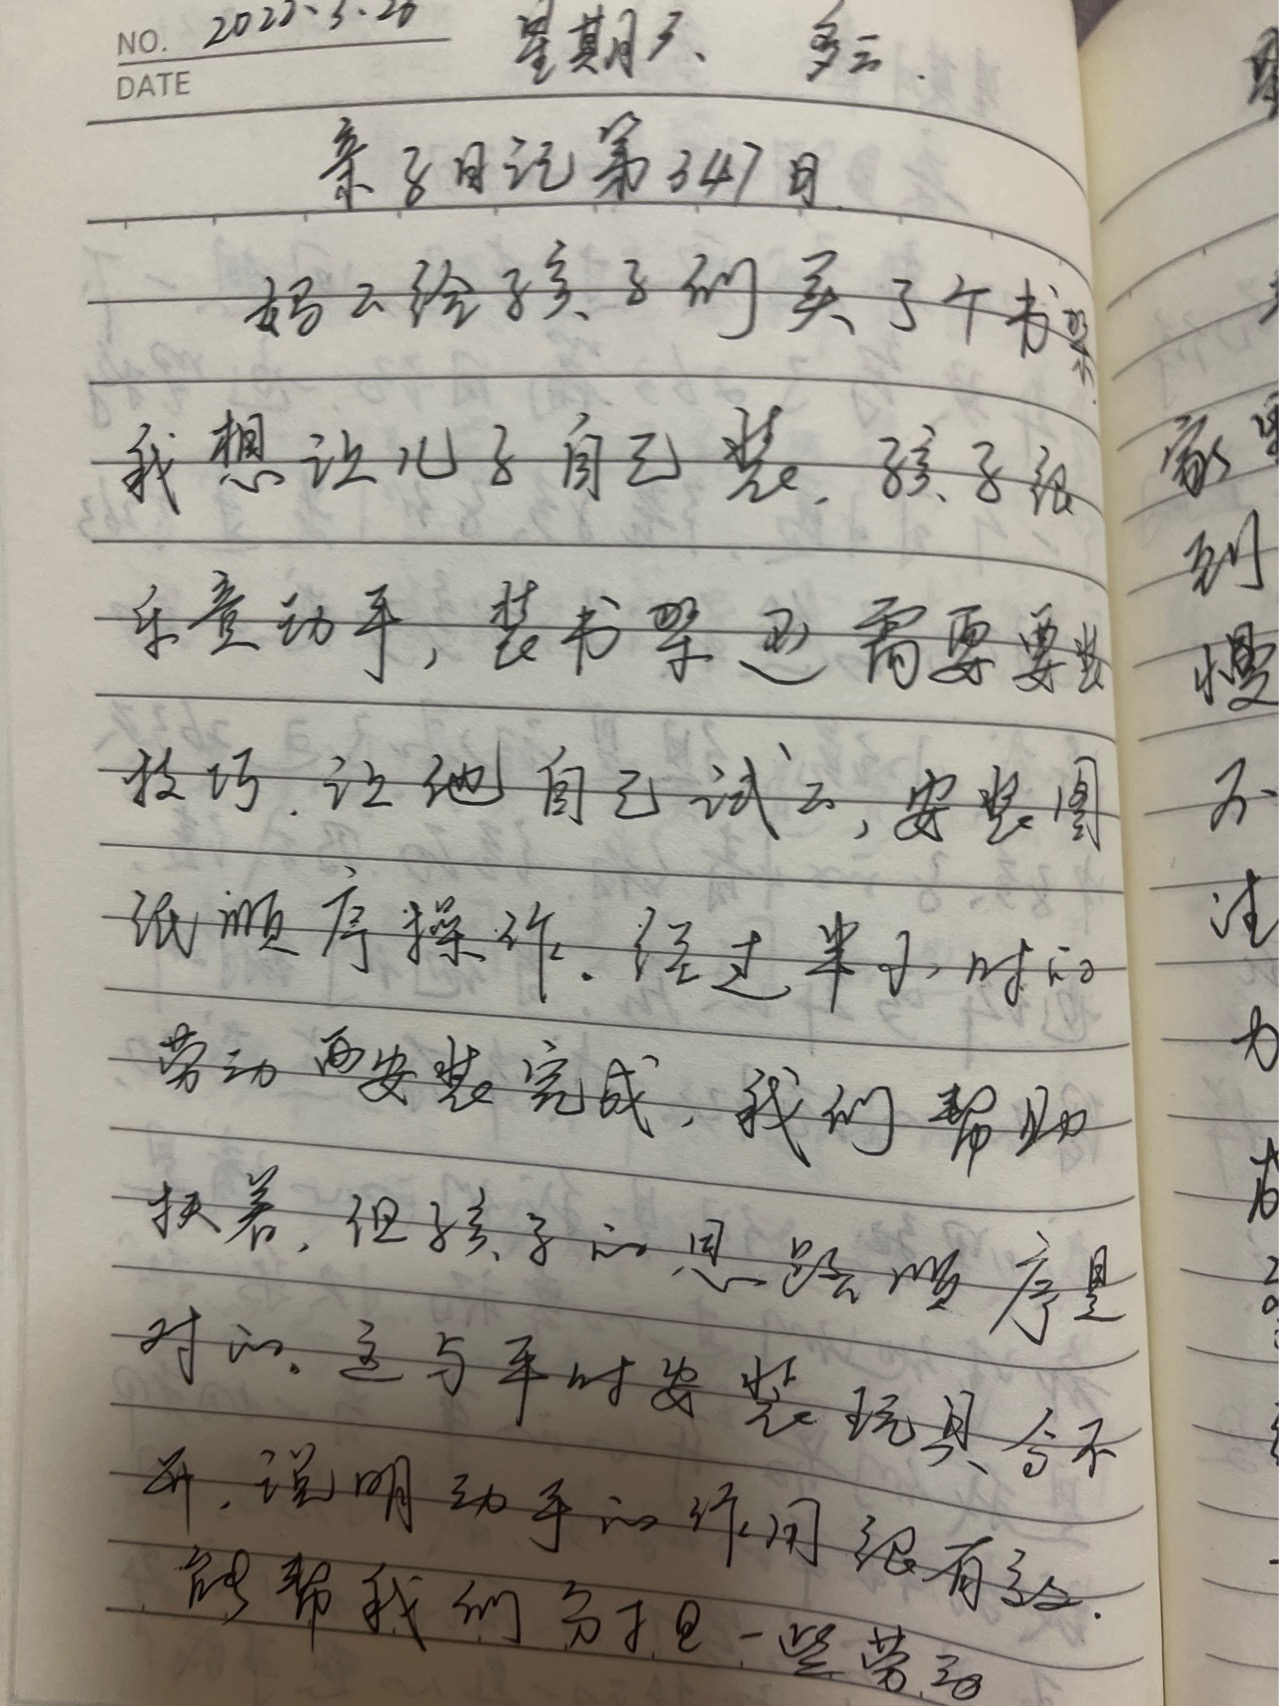 NO. 2022.3.26 星期六、 多云.
DATE
亲子日记第347日.
妈〻给孩子们买了个书架.
我想让儿子自己装. 孩子很
乐意动手, 装书架还需要要装
技巧. 让他自己试〻, 安装图
纸顺序操作. 经过半小时的
劳动 安装完成, 我们帮助
扶着, 但孩子的思路顺序是
对的. 这与平时安装玩具分不
开. 说明动手的作用很有效.
能帮我们分担一些劳动